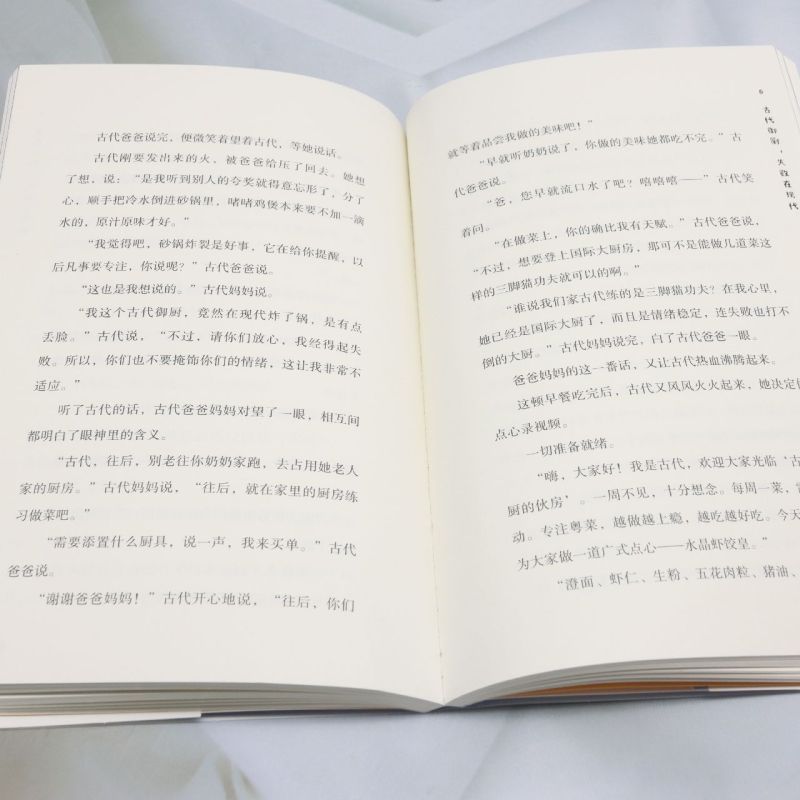 古代爸爸说完，便微笑着望着古代，等她说话。
古代刚要发出来的火，被爸爸给压了回去。她想
了想，说：“是我听到别人的夸奖就得意忘形了，分了
心，顺手把冷水倒进砂锅里，啫啫鸡煲本来要不加一滴
水的，原汁原味才好。”
“我觉得吧，砂锅炸裂是好事，它在给你提醒，以
后凡事要专注，你说呢？”古代爸爸说。
“这也是我想说的。”古代妈妈说。
“我这个古代御厨，竟然在现代炸了锅，是有点
丢脸。”古代说，“不过，请你们放心，我经得起失
败。所以，你们也不要掩饰你们的情绪，这让我非常不
适应。”
听了古代的话，古代爸爸妈妈对望了一眼，相互间
都明白了眼神里的含义。
“古代，往后，别老往你奶奶家跑，去占用她老人
家的厨房。”古代妈妈说，“往后，就在家里的厨房练
习做菜吧。”
“需要添置什么厨具，说一声，我来买单。”古代
爸爸说。
“谢谢爸爸妈妈！”古代开心地说，“往后，你们
就等着品尝我做的美味吧！”
“早就听奶奶说了，你做的美味她都吃不完。”古
代爸爸说。
“爸，您早就流口水了吧？嘻嘻嘻——”古代笑
着问。
“在做菜上，你的确比我有天赋。”古代爸爸说，
“不过，想要登上国际大厨房，那可不是能做几道菜这
样的三脚猫功夫就可以的啊。”
“谁说我们家古代练的是三脚猫功夫？在我心里，
她已经是国际大厨了，而且是情绪稳定，连失败也打不
倒的大厨。”古代妈妈说完，白了古代爸爸一眼。
爸爸妈妈的这一番话，又让古代热血沸腾起来。
这顿早餐吃完后，古代又风风火火起来，她决定
点心录视频。
一切准备就绪。
“嗨，大家好！我是古代，欢迎大家光临‘古
厨的伙房’。一周不见，十分想念。每周一菜，
动。专注粤菜，越做越上瘾，越吃越好吃。今天
为大家做一道广式点心——水晶虾饺皇。”
“澄面、虾仁、生粉、五花肉粒、猪油、
6
古代御厨，大败在现代